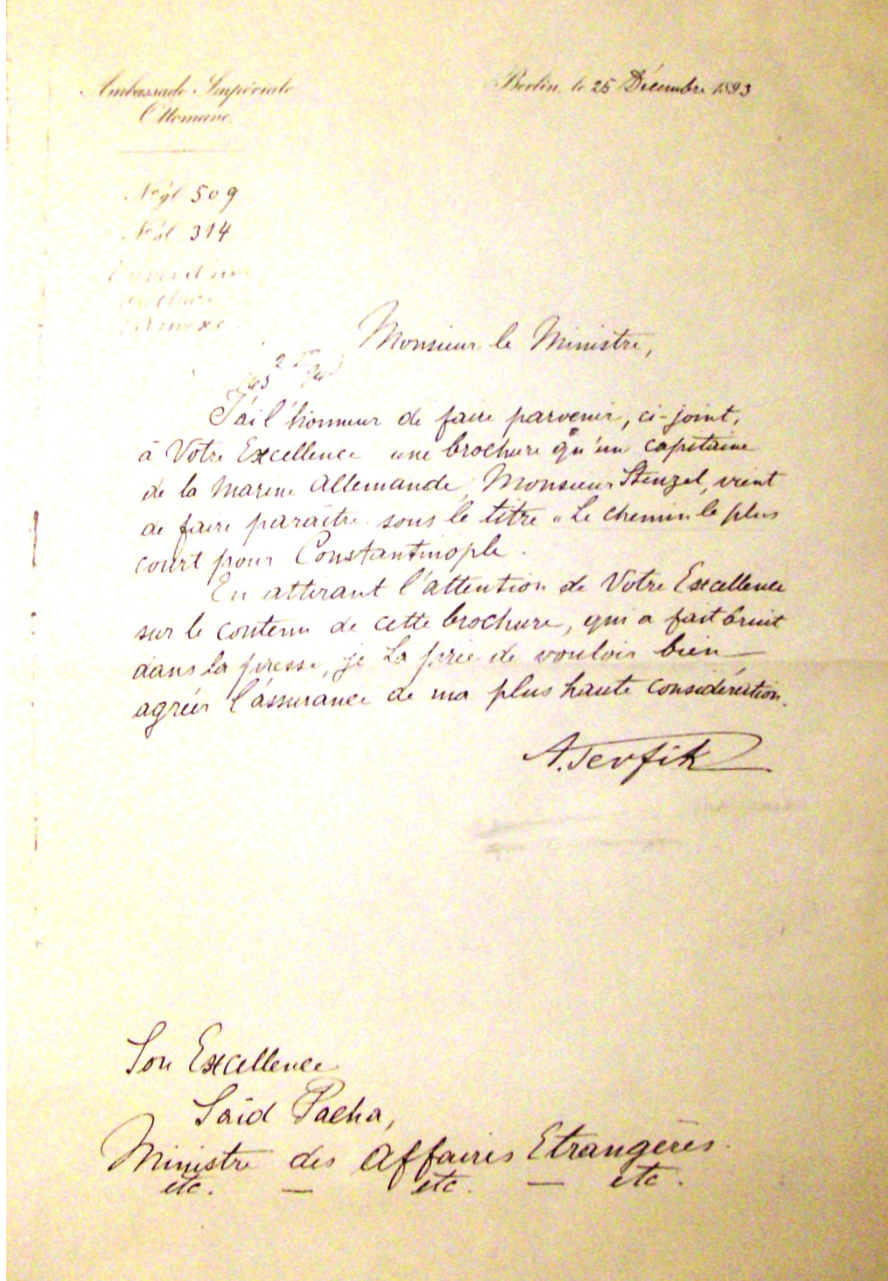 Ambassade Impériale
Ottomane.
Berlin, le 25 Décembre 1893
Nº gl 509
Nº sl 314
Envoi d'une
brochure
1 Annexe
Monsieur le Ministre,
J'ai l'honneur de faire parvenir, ci-joint,
à Votre Excellence une brochure qu'un capitaine
de la Marine Allemande, Monsieur Stenzel, vient
de faire paraître sous le titre "Le chemin le plus
court pour Constantinople.
En attirant l'attention de Votre Excellence
sur le contenu de cette brochure, qui a fait bruit
dans la presse, je La prie de vouloir bien
agréer l'assurance de ma plus haute considération.
A. Tevfik
Son Excellence
Saïd Pacha,
Ministre des Affaires Etrangères.
etc. — etc. — etc.